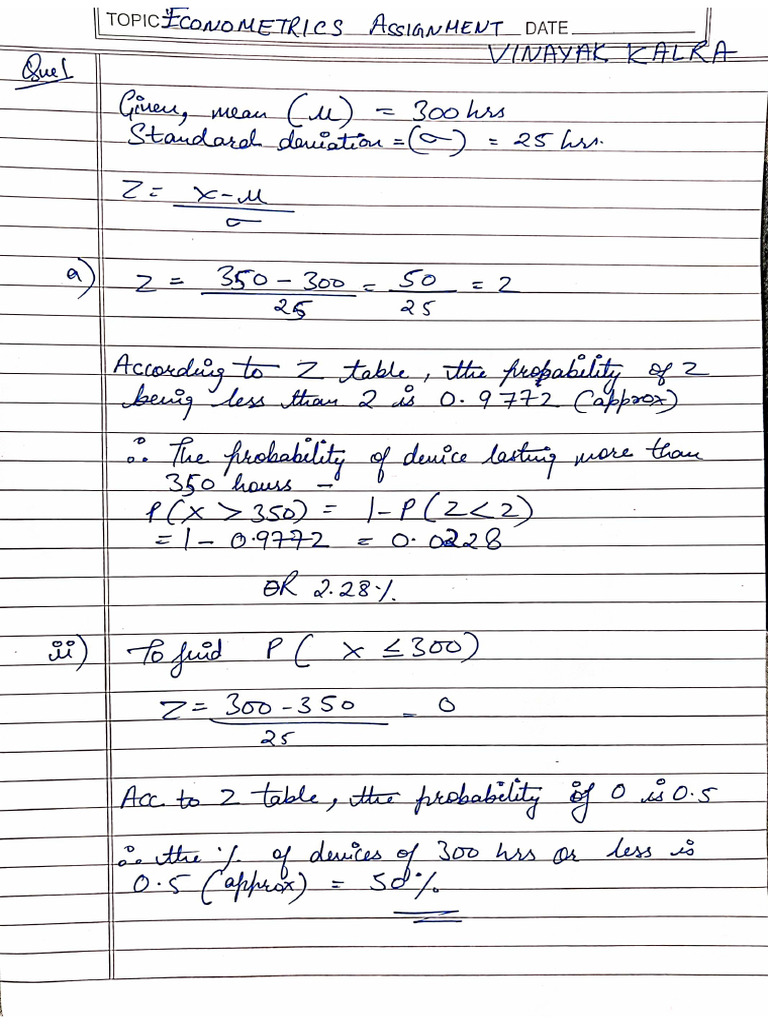 TOPIC: ECONOMETRICS ASSIGNMENT DATE
VINAYAK KALRA
Que1
Given, mean (μ) = 300 hrs
Standard deviation = (σ) = 25 hrs.
Z = x-μ
σ
a) Z = 350 - 300 = 50 = 2
25 25
According to Z table, the probability of z
being less than 2 is 0.9772 (approx)
∴ The probability of device lasting more than
350 hours -
P(X > 350) = 1-P(Z<2)
= 1 - 0.9772 = 0.0228
OR 2.28%
ii) To find P( x ≤ 300)
Z = 300 - 350 = 0
25
Acc. to Z table, the probability of 0 is 0.5
∴ the % of devices of 300 hrs or less is
0.5 (approx) = 50%